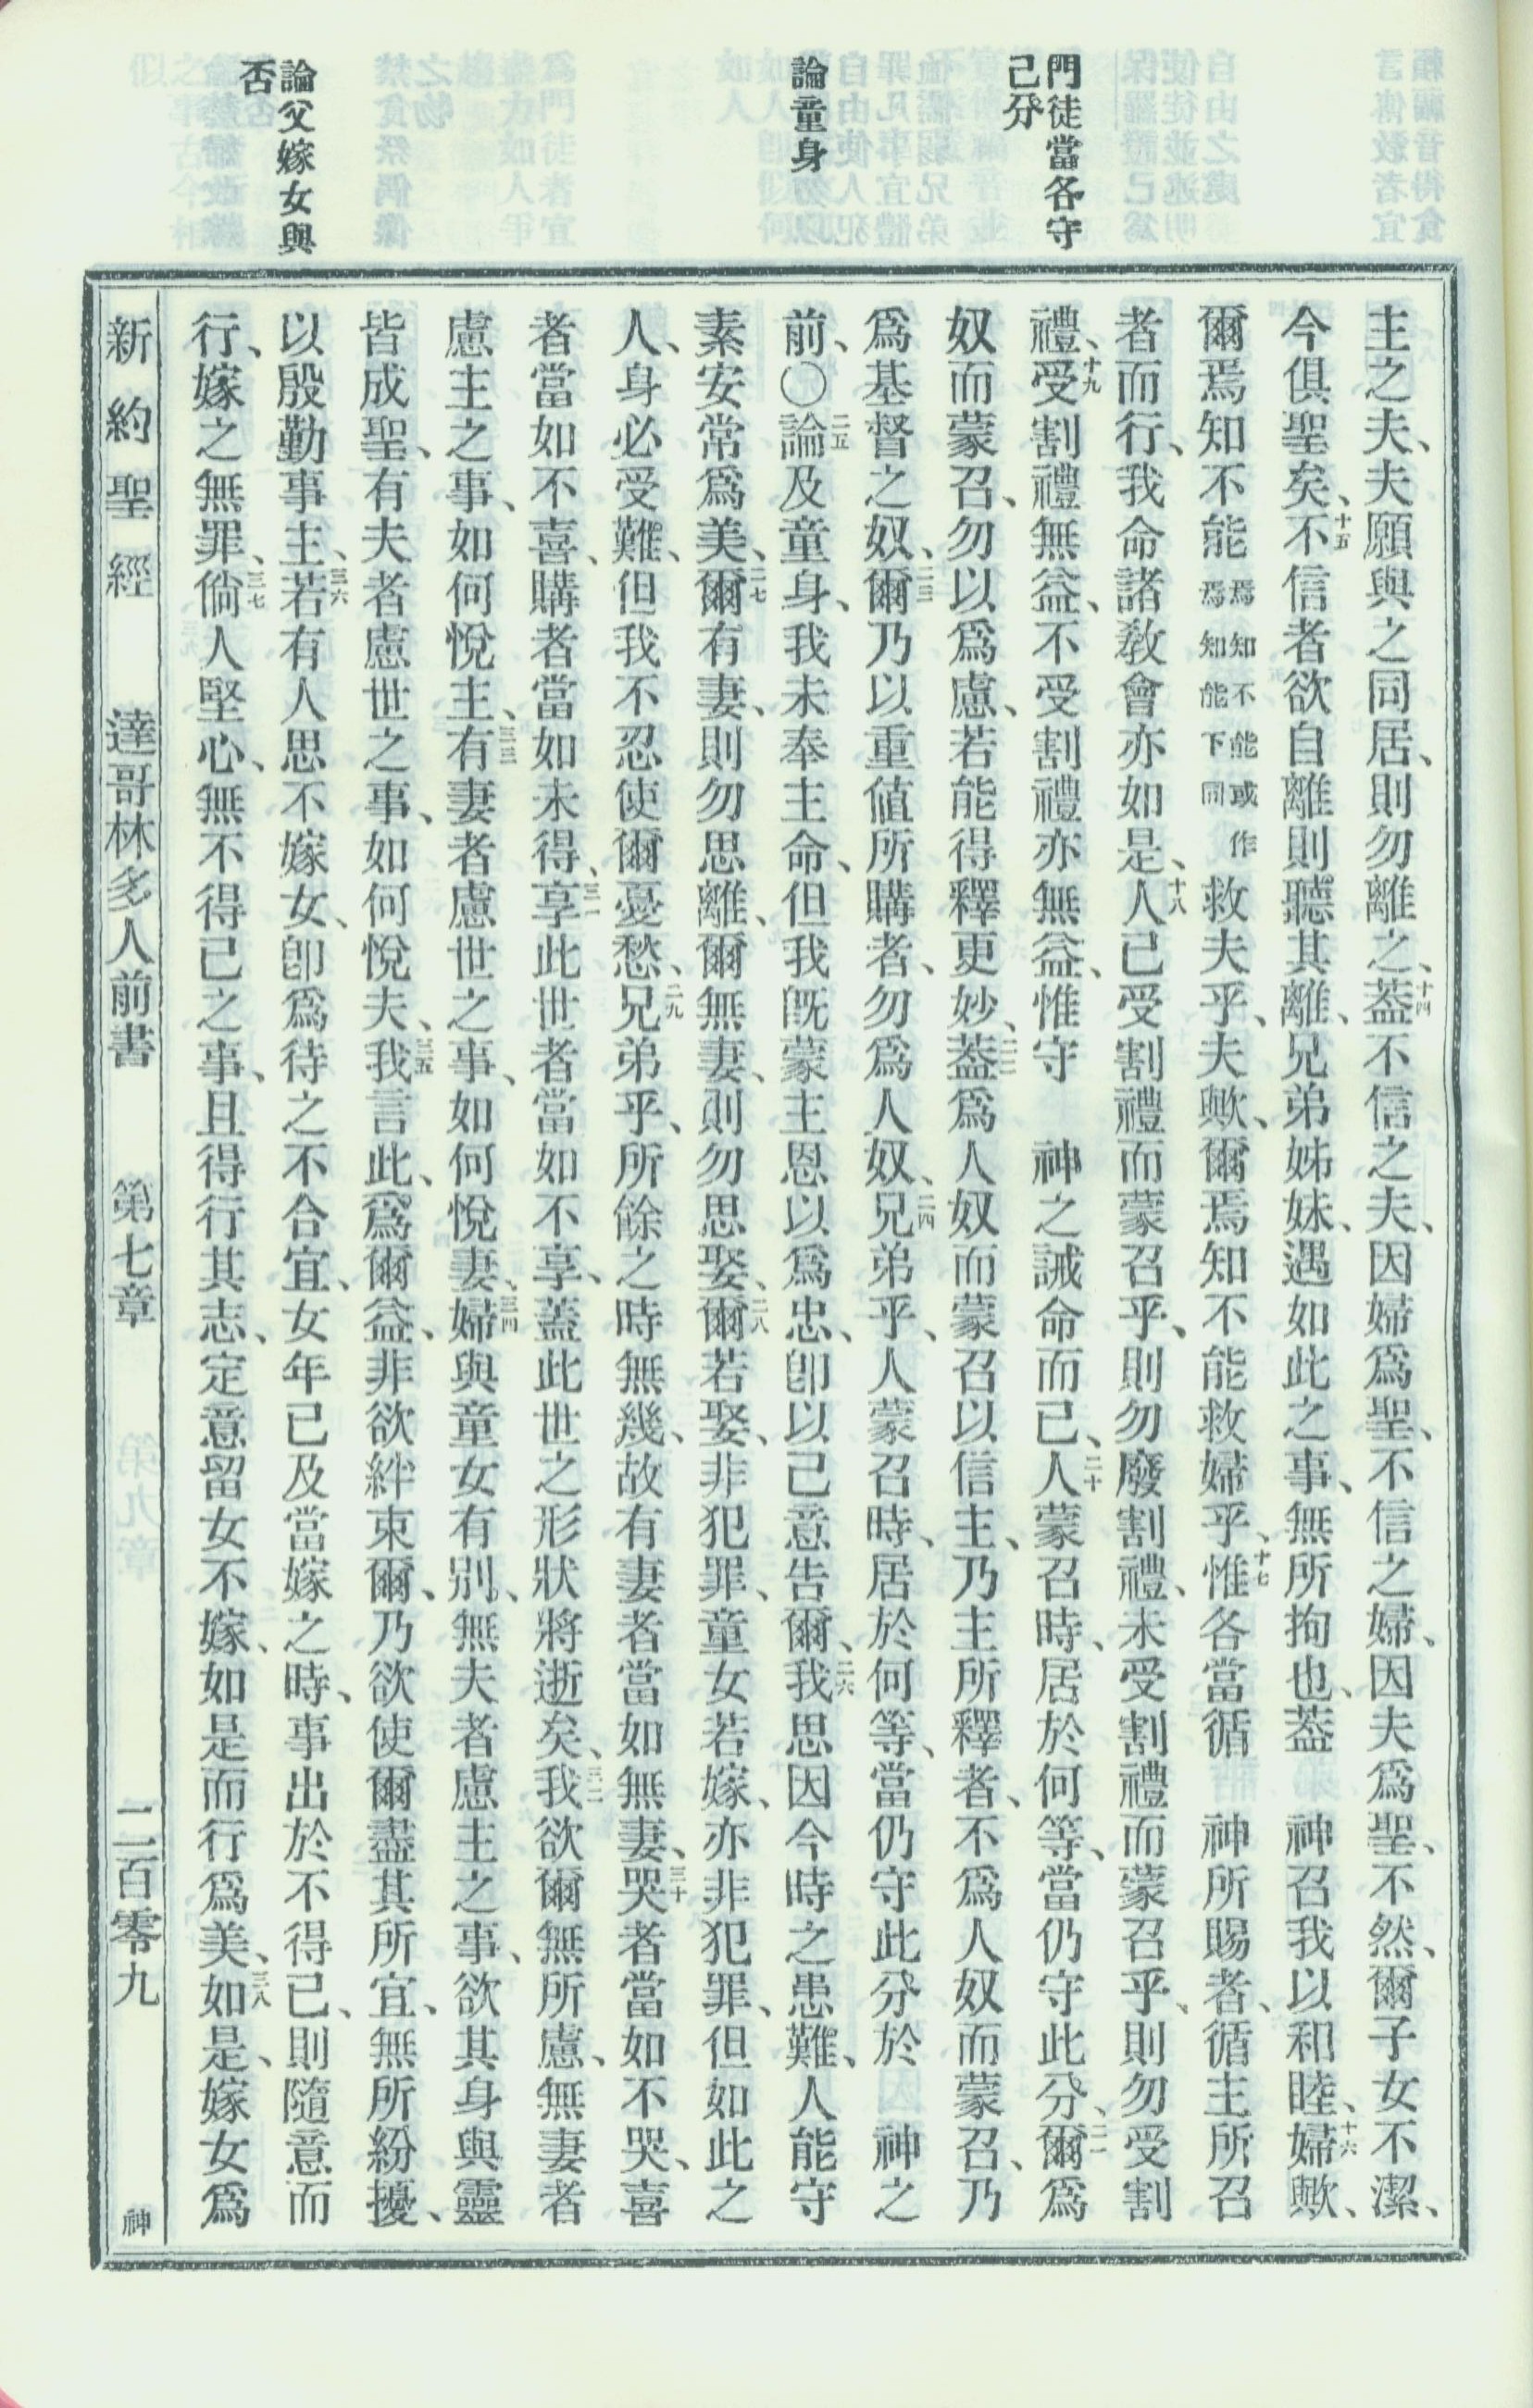 門徒當各守
己分
論童身
論父嫁女與
否
主之夫、夫願與之同居、則勿離之、十四蓋不信之夫、因婦爲聖、不信之婦、因夫爲聖、不然、爾子女不潔、
今俱聖矣、十五不信者欲自離則聽其離、兄弟姊妹、遇如此之事、無所拘也、蓋　神召我以和睦、十六婦歟、
爾焉知不能焉知不能或作焉知能下同救夫乎、夫歟、爾焉知不能救婦乎、十七惟各當循　神所賜者、循主所召
者而行、我命諸敎會亦如是、十八人已受割禮而蒙召乎、則勿廢割禮、未受割禮而蒙召乎、則勿受割
禮、十九受割禮無益、不受割禮亦無益、惟守　神之誡命而已、二十人蒙召時、居於何等、當仍守此分、二一爾爲
奴而蒙召、勿以爲慮、若能得釋更妙、二二蓋爲人奴而蒙召以信主、乃主所釋者、不爲人奴而蒙召、乃
爲基督之奴、二三爾乃以重値所購者、勿爲人奴、二四兄弟乎、人蒙召時、居於何等、當仍守此分於　神之
前、〇二五論及童身、我未奉主命、但我旣蒙主恩以爲忠、卽以己意吿爾、二六我思因今時之患難、人能守
素安常爲美、二七爾有妻、則勿思離、爾無妻、則勿思娶、二八爾若娶、非犯罪、童女若嫁、亦非犯罪、但如此之
人、身必受難、但我不忍使爾憂愁、二九兄弟乎、所餘之時無幾、故有妻者當如無妻、三十哭者當如不哭、喜
者當如不喜、購者當如未得、三一享此世者當如不享、蓋此世之形狀將逝矣、三二我欲爾無所慮、無妻者
慮主之事、如何悅主、三三有妻者慮世之事、如何悅妻、三四婦與童女有別、無夫者慮主之事、欲其身與靈
皆成聖、有夫者慮世之事、如何悅夫、三五我言此、爲爾益、非欲絆束爾、乃欲使爾盡其所宜、無所紛擾、
以殷勤事主、三六若有人思不嫁女、卽爲待之不合宜、女年已及當嫁之時、事出於不得已、則隨意而
行、嫁之無罪、三七倘人堅心、無不得已之事、且得行其志、定意留女不嫁、如是而行爲美、三八如是、嫁女爲
新約聖經　達哥林多人前書　第七章　二百零九　神